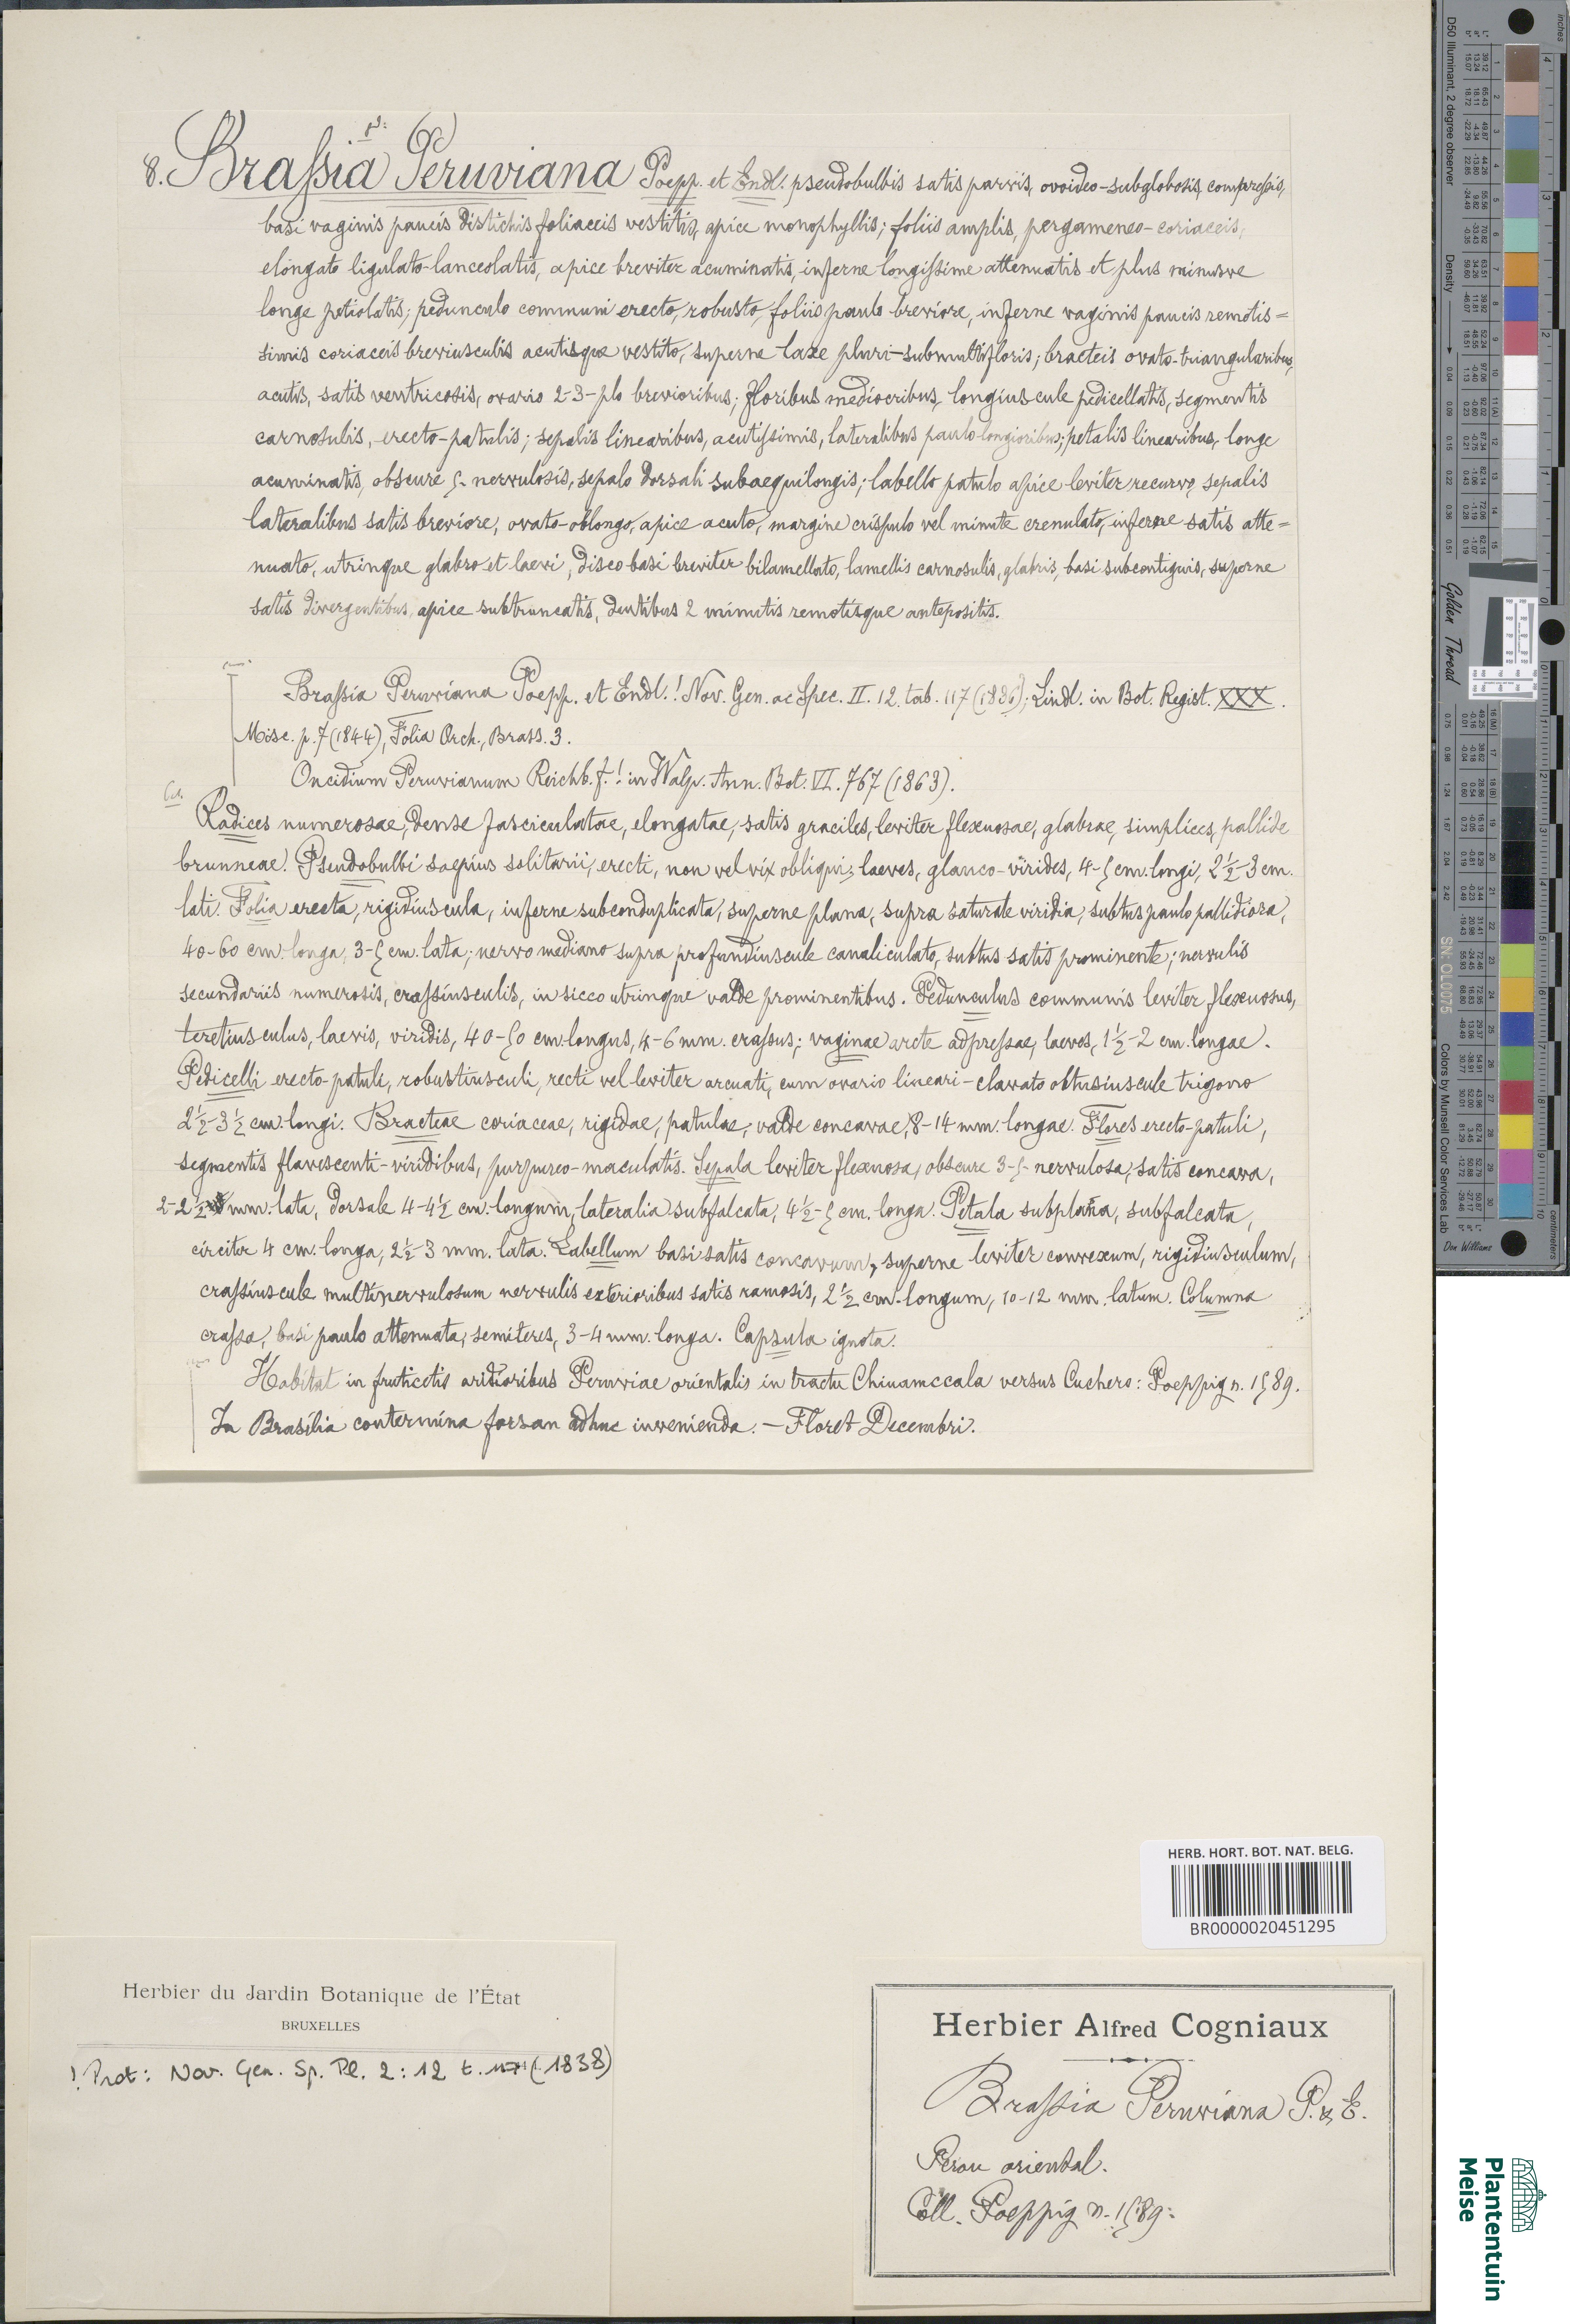 8. Brassia Peruviana Poepp. et Endl. pseudobulbis satis parvis, ovoideo-subglobosis, compressis,
basi vaginis paucis distichis foliaceis vestitis, apice monophyllis; foliis amplis, pergameneo-coriaceis,
elongato ligulato-lanceolatis, apice breviter acuminatis, inferne longissime attenuatis et plus minusve
longe petiolatis; pedunculo communi erecto, robusto, foliis paulo breviore, inferne vaginis paucis remotis=
simis coriaceis breviusculis acutisque vestito, superne laxe pluri-submultifloris; bracteis ovato-triangularibus,
acutis, satis ventricosis, ovario 2-3-plo brevioribus; floribus mediocribus, longiuscule pedicellatis, segmentis
carnosulis, erecto-patulis; sepalis linearibus, acutissimis, lateralibus paulo longioribus; petalis linearibus, longe
acuminatis, obscure 5-nervulosis, sepalo dorsali subaequilongis; labello patulo apice leviter recurvo, sepalis
lateralibus satis breviore, ovato-oblongo, apice acuto, margine crispulo vel minute crenulato, inferne satis atte=
nuato, utrinque glabro et laevi, disco basi breviter bilamellato, lamellis carnosulis, glabris, basi subcontiguis, superne
satis divergentibus, apice subtruncatis, dentibus 2 minutis remotisque antepositis.
Brassia Peruviana Poepp. et Endl.! Nov. Gen. ac Spec. II. 12. tab. 117 (1836); Lindl. in Bot. Regist. XXX.
Misc. p. 7 (1844), Folia Orch., Brass. 3.
Oncidium Peruvianum Reichb. f.! in Walp. Ann. Bot. VI. 767 (1863).
Radices numerosae, dense fasciculatae, elongatae, satis graciles, leviter flexuosae, glabrae, simplices, pallide
brunneae. Pseudobulbi saepius solitarii, erecti, non vel vix obliqui, laeves, glauco-virides, 4-5 cm. longi, 2½-3 cm.
lati. Folia erecta, rigidiuscula, inferne subconduplicata, superne plana, supra saturate viridia, subtus paulo pallidiora,
40-60 cm. longa, 3-5 cm. lata; nervo mediano supra profundiuscule canaliculato, subtus satis prominente; nervulis
secundariis numerosis, crassiusculis, in sicco utrinque valde prominentibus. Pedunculus communis leviter flexuosus,
teretiusculus, laevis, viridis, 40-50 cm. longus, 4-6 mm. crassus; vaginae arcte adpressae, laeves, 1½-2 cm. longae.
Pedicelli erecto-patuli, robustiusculi, recti vel leviter arcuati, cum ovario lineari-clavato obtusiuscule trigono
2½-3½ cm. longi. Bracteae coriaceae, rigidae, patulae, valde concavae, 8-14 mm. longae. Flores erecto-patuli,
segmentis flavescenti-viridibus, purpureo-maculatis. Sepala leviter flexuosa, obscure 3-5-nervulosa, satis concava,
2-2½ mm. lata, dorsale 4-4½ cm. longum, lateralia subfalcata, 4½-5 cm. longa. Petala subplana, subfalcata,
circiter 4 cm. longa, 2½-3 mm. lata. Labellum basi satis concavum, superne leviter convexum, rigidiusculum,
crassiuscule multinervulosum nervulis exterioribus satis ramosis, 2½ cm. longum, 10-12 mm. latum. Columna
crassa, basi paulo attenuata, semiteres, 3-4 mm. longa. Capsula ignota.
Habitat in fruticetis aridioribus Peruviae orientalis in tractu Chinamccala versus Cuchero: Poeppig n. 1589.
In Brasilia contermina forsan adhuc invenienda. — Floret Decembri.
HERB. HORT. BOT. NAT. BELG.
BR0000020451295
Herbier du Jardin Botanique de l'État
BRUXELLES
! Prot: Nov. Gen. Sp. Pl. 2: 12 t. 117 (1838)
Herbier Alfred Cogniaux
Brassia Peruviana P. & E.
Pérou oriental.
Coll. Poeppig n. 1589.
Plantentuin
Meise
D50 Illuminant, 2 degree observer
Density
Golden Thread
SN: OL0075
Colors by Munsell Color Services Lab
Don Williams
inches
centimeters